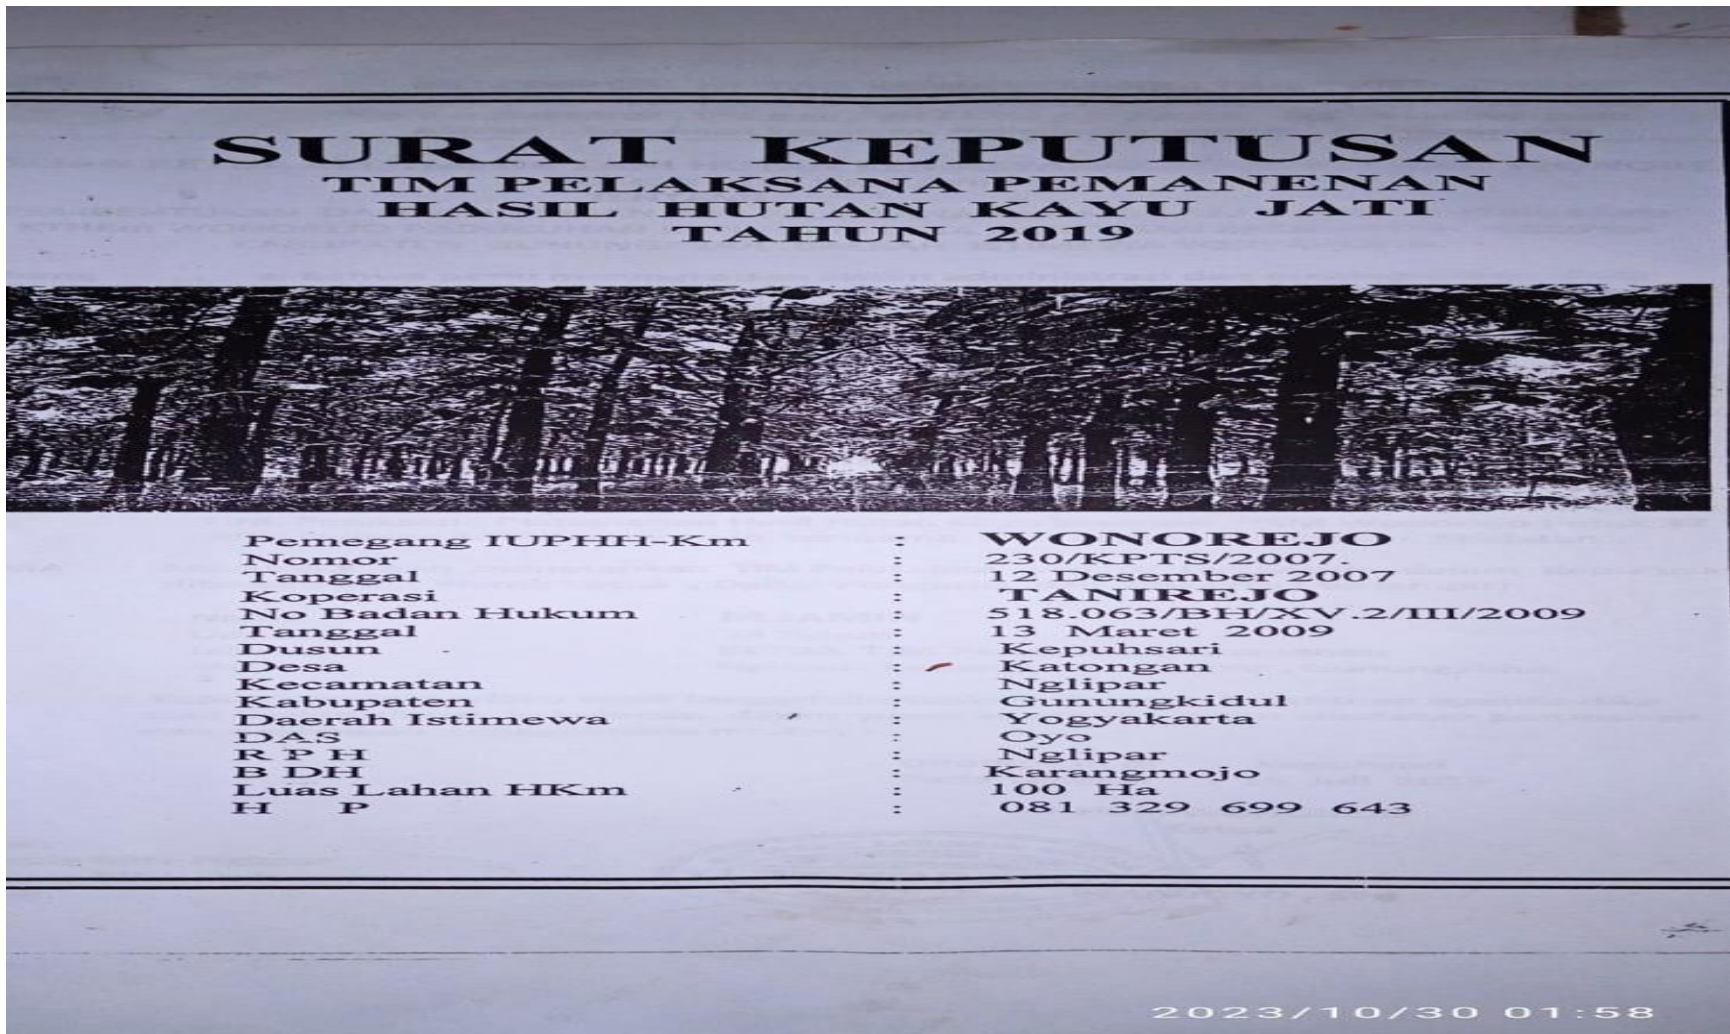 SURAT KEPUTUSAN
TIM PELAKSANA PEMANENAN
HASIL HUTAN KAYU JATI
TAHUN 2019
Pemegang IUPHH-Km : WONOREJO
Nomor : 230/KPTS/2007.
Tanggal : 12 Desember 2007
Koperasi : TANIREJO
No Badan Hukum : 518.063/BH/XV.2/III/2009
Tanggal : 13 Maret 2009
Dusun : Kepuhsari
Desa : Katongan
Kecamatan : Nglipar
Kabupaten : Gunungkidul
Daerah Istimewa : Yogyakarta
DAS : Oyo
R P H : Nglipar
B DH : Karangmojo
Luas Lahan HKm : 100 Ha
H P : 081 329 699 643
2023/10/30 01:58